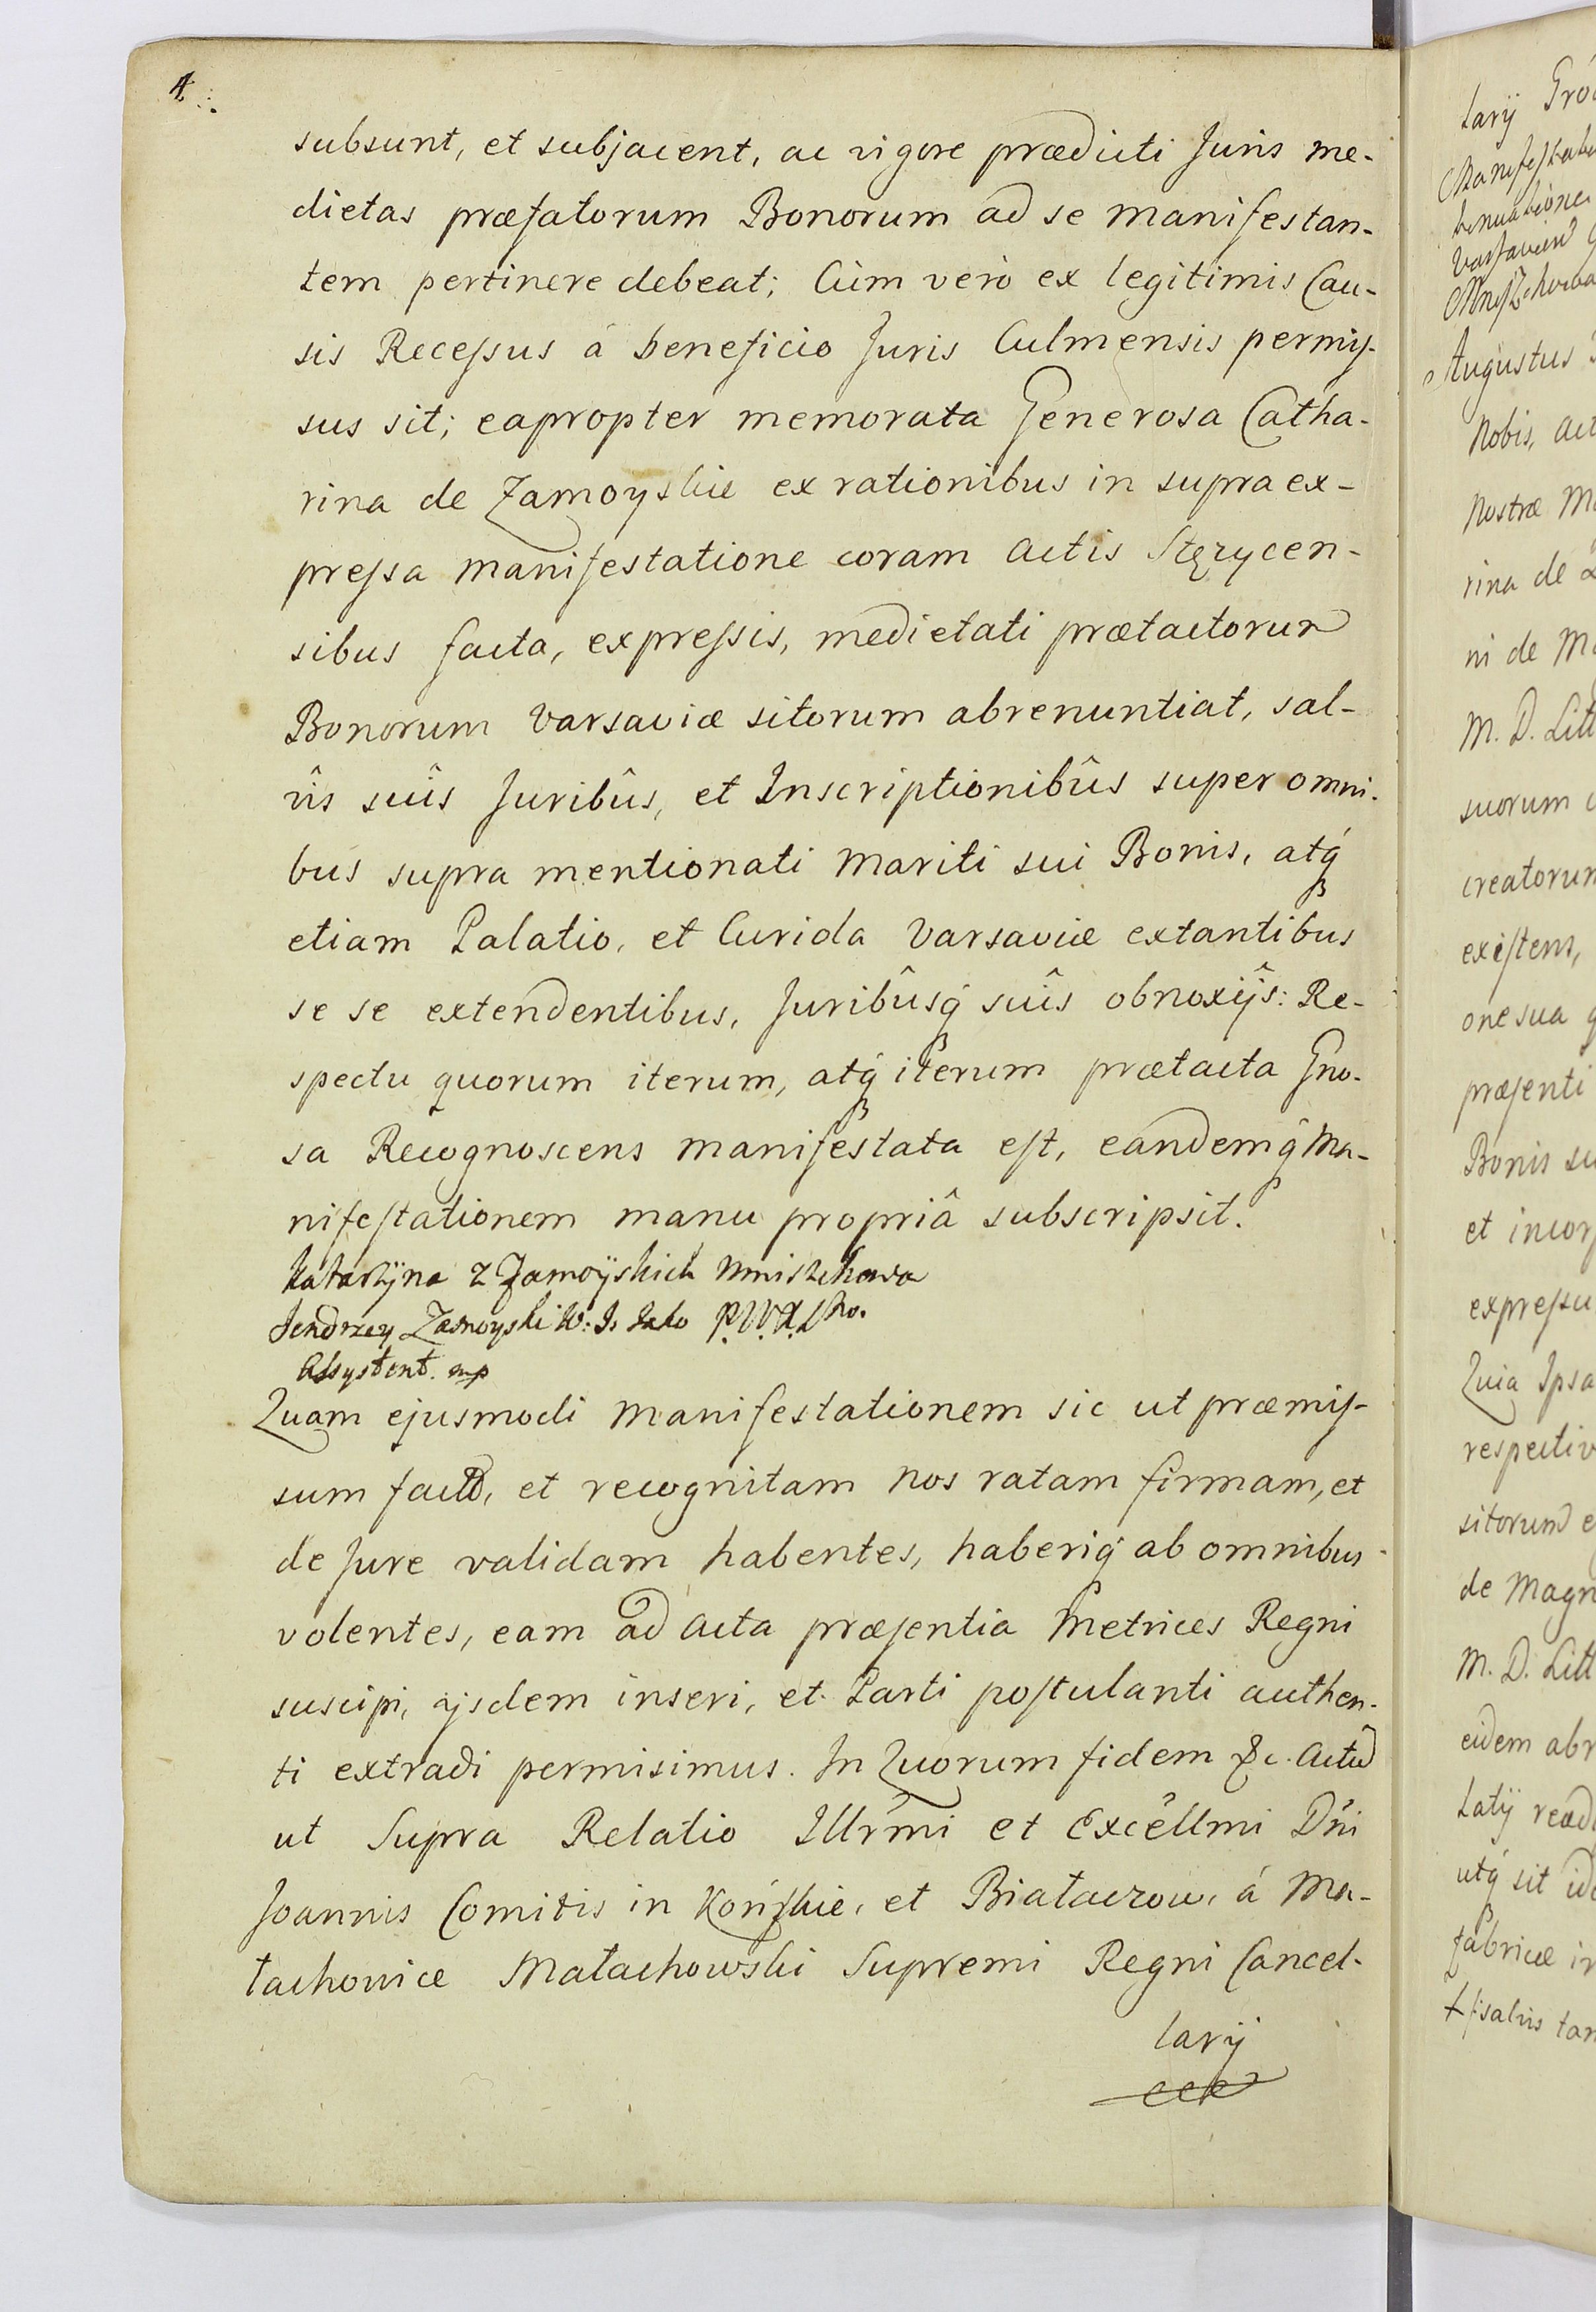 4.
subsunt, et subjacent, ac vigore prædicti Juris me-
dietas præfatorum Bonorum ad se manifestan-
tem pertinere debeat; Cùm verò ex legitimis Cau-
sis Recessus á beneficio Juris Culmensis permis-
sus sit; eapropter memorata Generosa Catha-
rina de Zamoyskie ex rationibus in supra ex-
pressa manifestatione coram Actis Stęzycen-
sibus facta, expressis, medietati prætactorum
Bonorum Varsaviæ sitorum abrenuntiat, sal-
vîs suîs Juribûs, et Inscriptionibûs super omni-
bus supra mentionati Mariti sui Bonis, atq́
etiam Palatio, et Curiola Varsaviæ extantibus
se se extendentibus, Juribûsq́ suîs obnoxijs: Re-
spectu quorum iterum, atq́ iterum prætacta Gno-
sa Recognoscens manifestata est, eandemq́ Ma-
nifestationem manu propriâ subscripsit.
Katarzÿna z Zamoÿskich Mniszchowa
Jendrzey Zamoyski W: I. Jako P.W.X.Lho.
Assystent. mp
Quam ejusmodi Manifestationem sic ut præmis-
sum factã, et recognitam nos ratam firmam, et
de Jure validam habentes, haberiq́ ab omnibus
volentes, eam ad Acta præsentia Metrices Regni
suscipi, ijsdem inseri, et Parti postulanti authen-
ti extradi permisimus. In Quorum fidem &c. Actũ
ut Supra Relatio Illrmi et Excellmi Dñi
Joannis Comitis in Końskie, et Białaczow, á Ma-
łachowice Małachowski Supremi Regni Cancel-
larij
larij
Augustus
Nobis, Act
Nostræ
rina de
ni de
M. D. Litt
suorum
creatorum
existens,
one sua
præsenti
Bonis su
et incor
expressu
Quia Ipsa
respectiv
sitorum
de Magn
M. D. Litt
eidem abr
utq́ sit
fabricæ
salvis tam